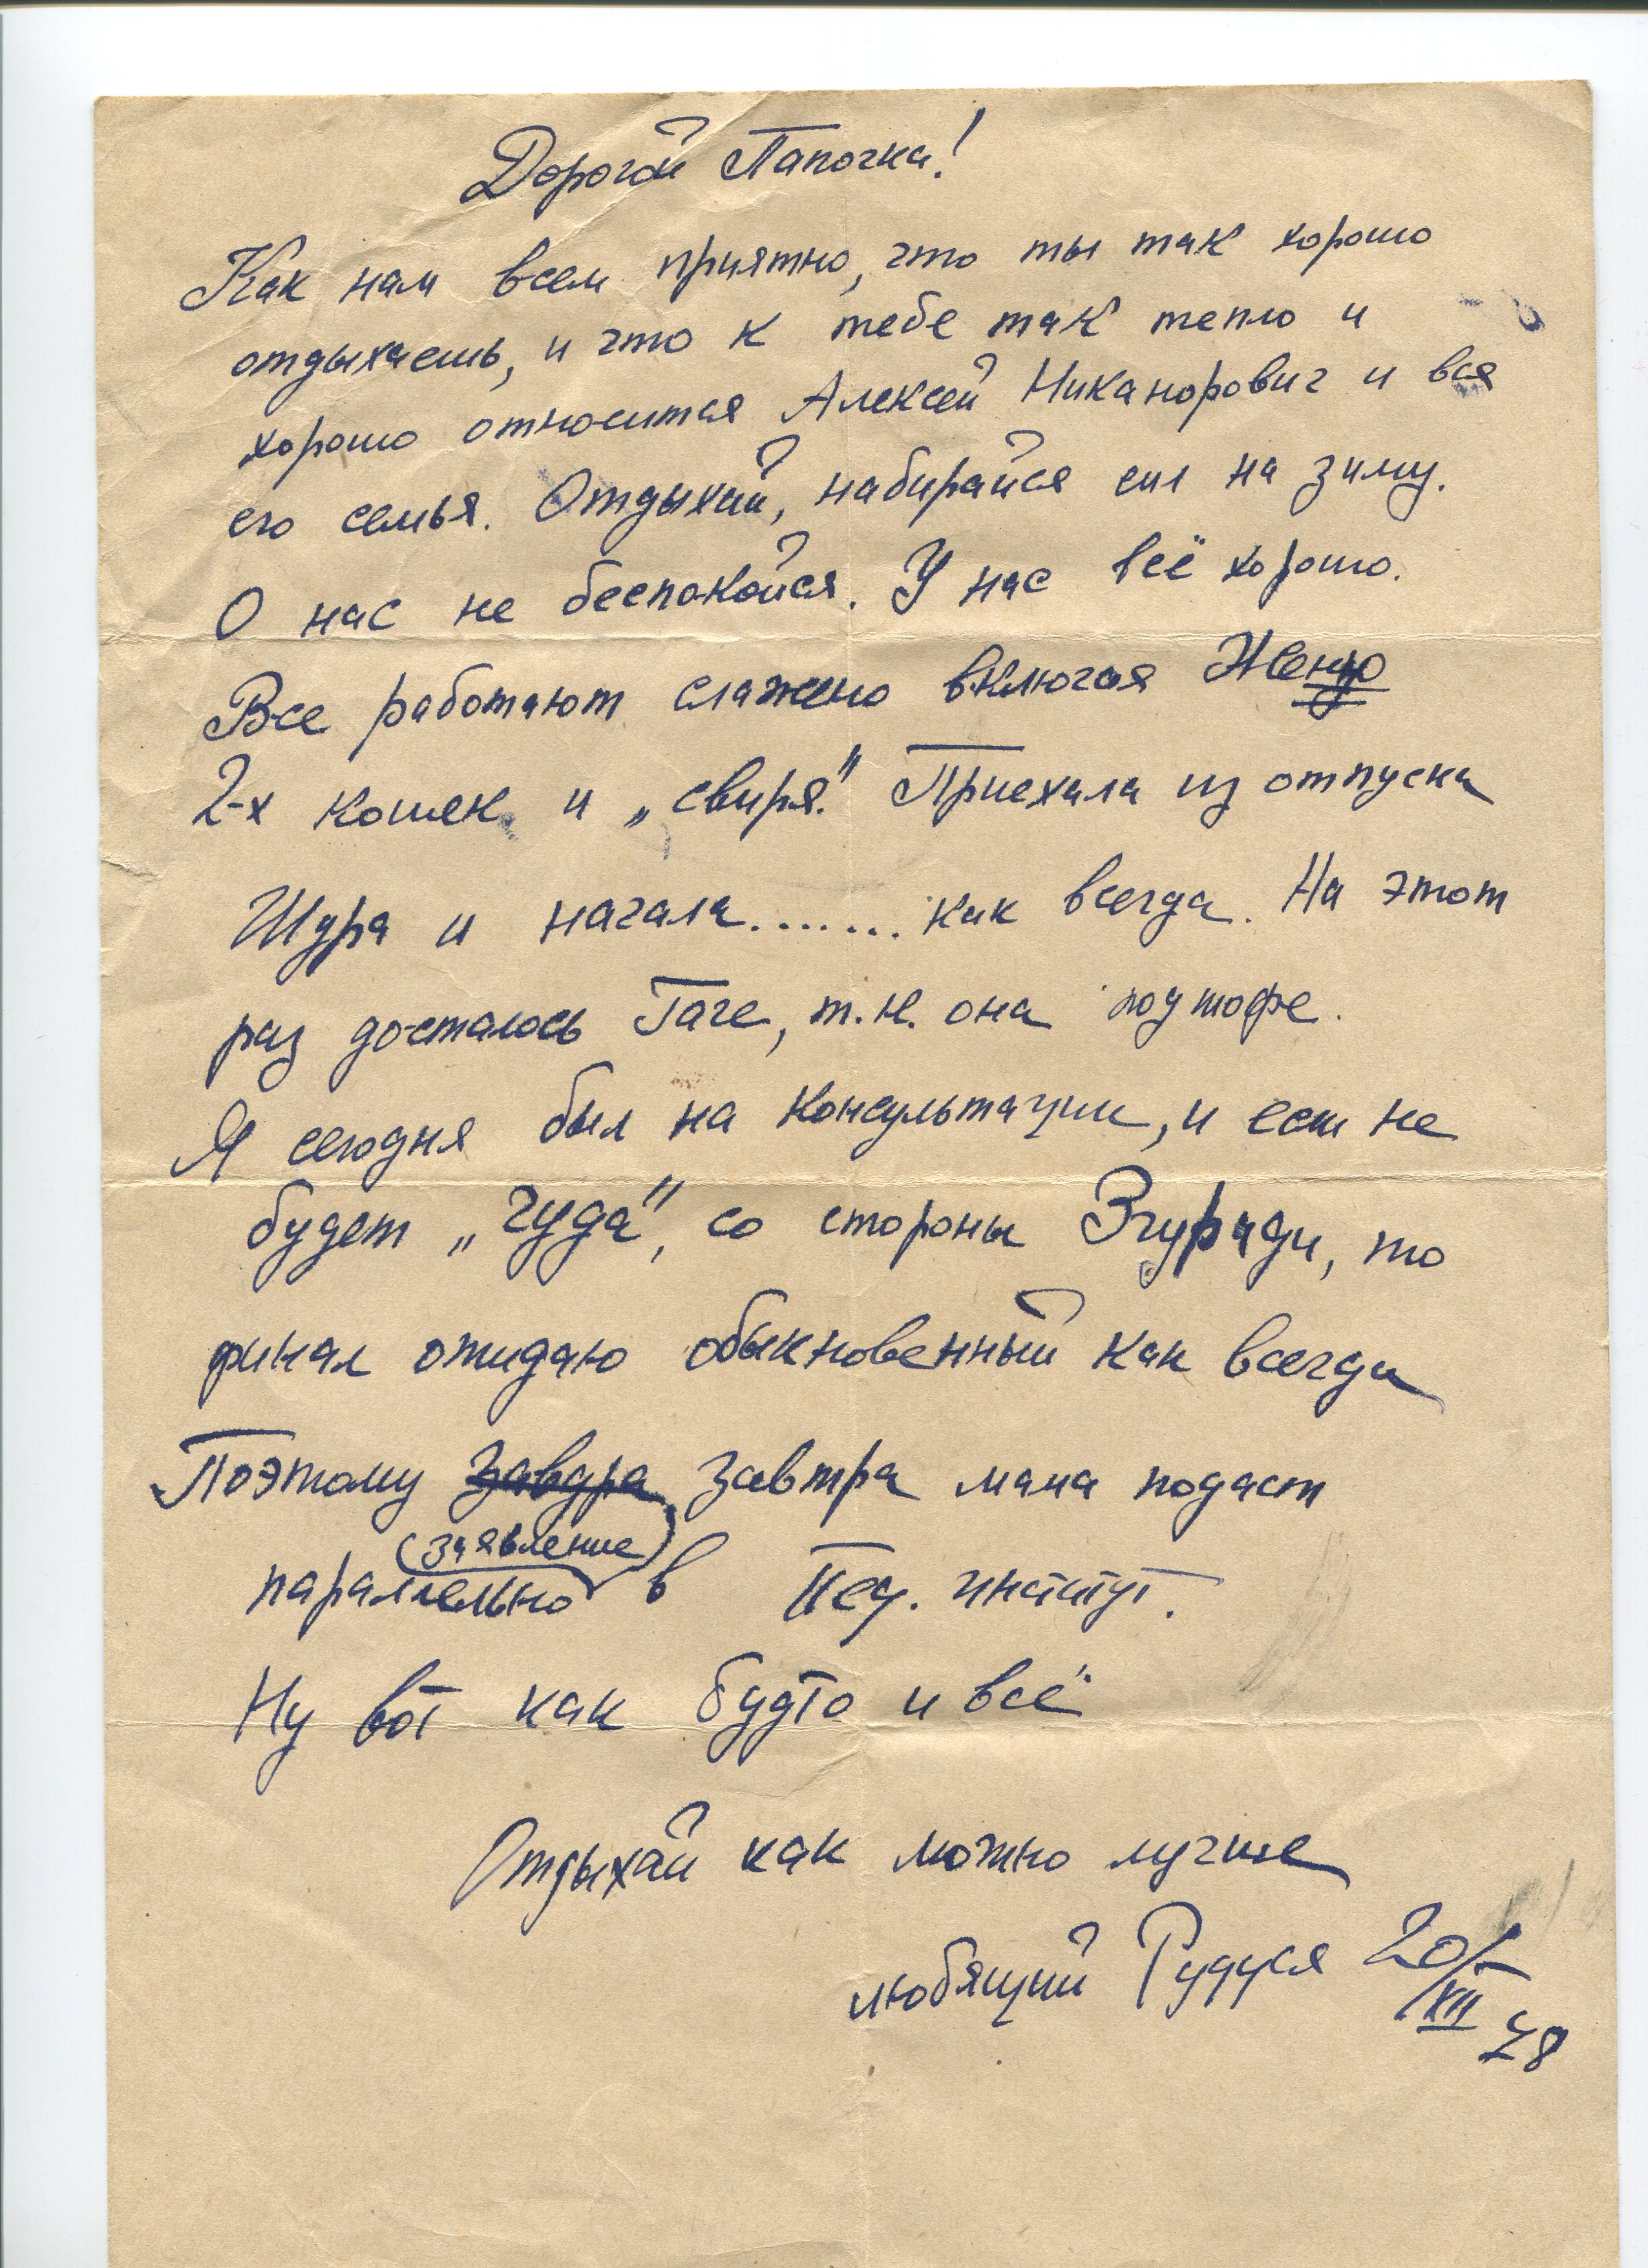 Дорогой Папочка!
Как нам всем приятно, что ты так хорошо
отдыхаешь, и что к тебе так тепло и
хорошо относится Алексей Никанорович и вся
его семья. Отдыхай, набирайся сил на зиму.
О нас не беспокойся. У нас всё хорошо.
Все работают слажено включая Женю
2-х кошек и „свиря." Приехала из отпуска
Шура и начала....... как всегда. На этот
раз досталось Гаче, т.к. она под шофе.
Я сегодня был на консультации, и если не
будет „чуда", со стороны Згуриди, то
финал ожидаю обыкновенный как всегда
Поэтому завдра завтра мама подаст
(заявление)
параллельно в Пед. институт.
Ну вот как будто и всё
Отдыхай как можно лучше
любящий Рудуся 20/
XII 48